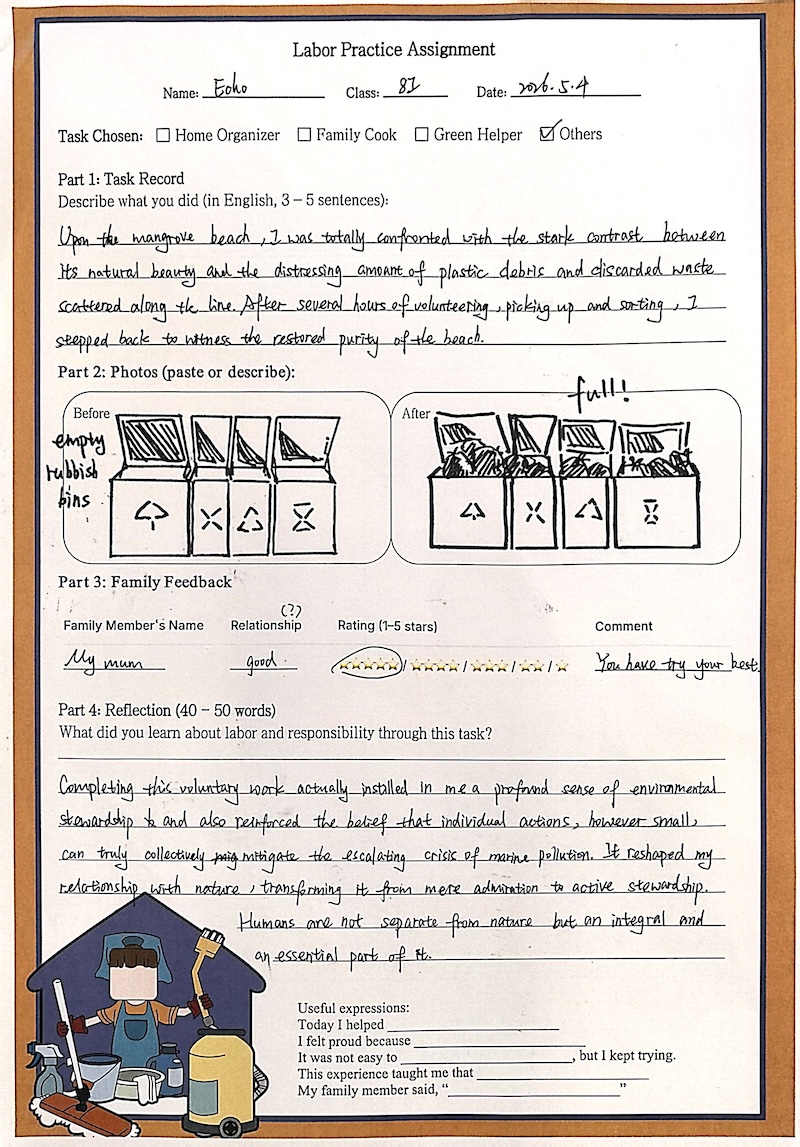 Labor Practice Assignment
Name: Echo Class: 81 Date: 2026.5.4
Task Chosen: ☐ Home Organizer ☐ Family Cook ☐ Green Helper ☑ Others
Part 1: Task Record
Describe what you did (in English, 3 – 5 sentences):
Upon the mangrove beach, I was totally confronted with the stark contrast between
its natural beauty and the distressing amount of plastic debris and discarded waste
scattered along the line. After several hours of volunteering, picking up and sorting, I
stepped back to witness the restored purity of the beach.
Part 2: Photos (paste or describe):
full!
Before
After
empty
rubbish
bins
Part 3: Family Feedback
(?)
Family Member's Name Relationship Rating (1–5 stars) Comment
My mum good. ⭐⭐⭐⭐⭐/⭐⭐⭐⭐/⭐⭐⭐/⭐⭐/⭐ You have try your best.
Part 4: Reflection (40 – 50 words)
What did you learn about labor and responsibility through this task?
Completing this voluntary work actually instilled in me a profound sense of environmental
stewardship and also reinforced the belief that individual actions, however small,
can truly collectively mitigate the escalating crisis of marine pollution. It reshaped my
relationship with nature, transforming it from mere admiration to active stewardship.
Humans are not separate from nature but an integral and
an essential part of it.
Useful expressions:
Today I helped
I felt proud because
It was not easy to , but I kept trying.
This experience taught me that
My family member said, “ ”